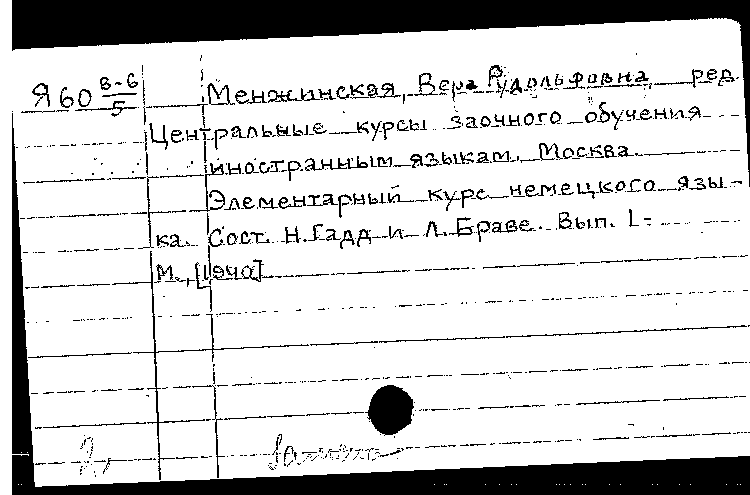 Я60 В-6/5
Менжинская, Вера Рудольфовна, ред.
Центральные курсы заочного обучения
иностранным языкам, Москва.
Элементарный курс немецкого язы-
ка. Сост. Н. Гадд и Л. Браве. Вып. 1-
М., [1940]
2,